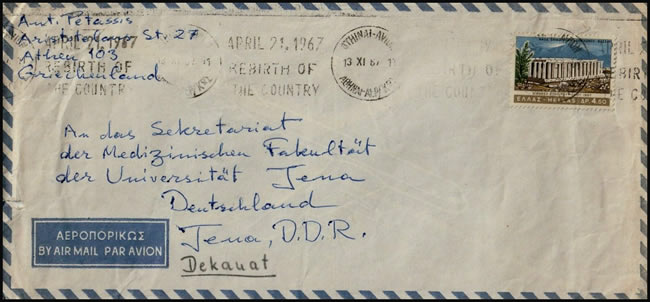 Ant. Petassis
Aristotelous St. 27
Athen 103
Griechenland
APRIL 21, 1967
REBIRTH OF
THE COUNTRY
APRIL 21, 1967
REBIRTH OF
THE COUNTRY
13 XI 67
ΕΛΛΑΣ-HELLAS ΔΡ. 4.50
REBIRTH OF
THE COUNTRY
An das Sekretariat
der Medizinischen Fakultät
der Universität Jena
Deutschland
Jena, D.D.R.
Dekanat
ΑΕΡΟΠΟΡΙΚΩΣ
BY AIR MAIL PAR AVION